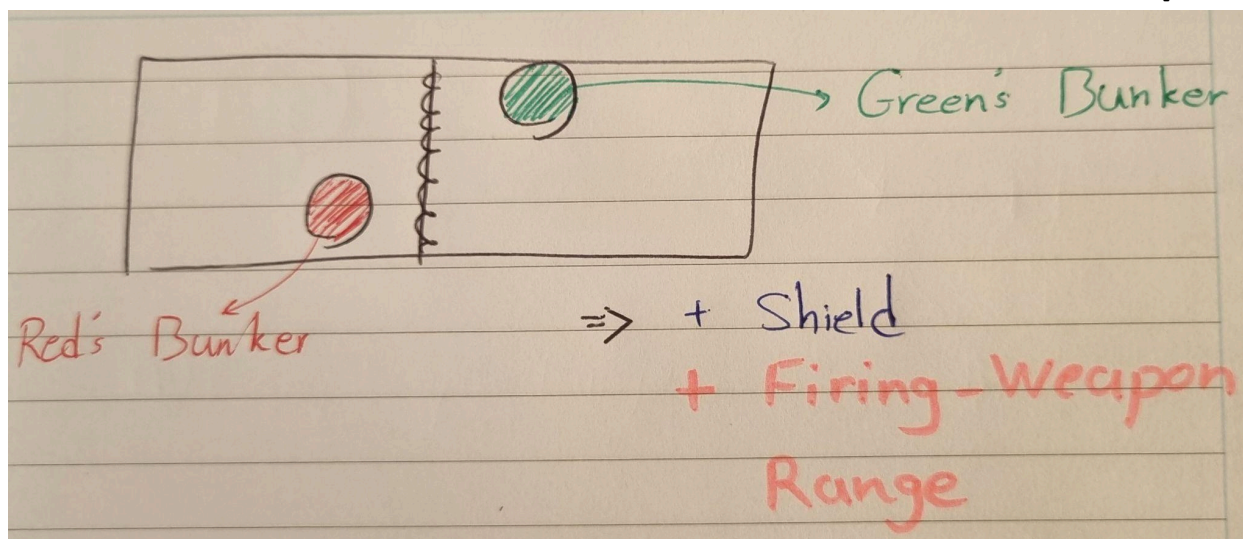 Green's Bunker
Red's Bunker
=> + Shield
+ Firing-Weapon
Range